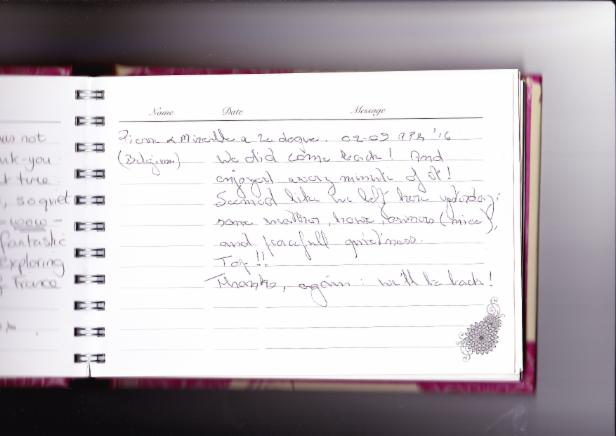 was not
ank-you
so quiet
wow -
fantastic
exploring
France
Name Date Message
Pierre & Mireille & Ze dogue. 02-09 APR '16
(Belgium) We did come back! And
enjoyed every minute of it!
Seemed like we left here yesterday:
same weather, (nice),
and peacefull quietness.
Top!!
Thanks, again: we'll be back!